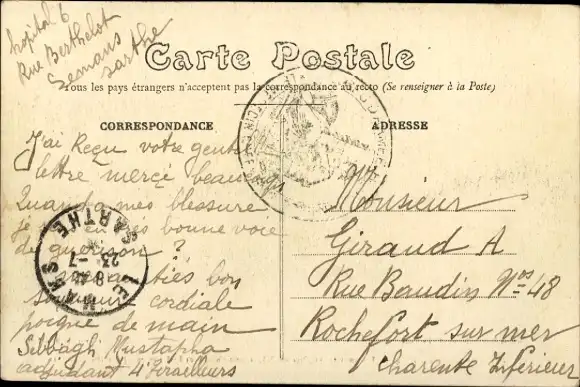 hopital 6
Rue Berthelot
Semans
sarthe
Carte Postale
Tous les pays étrangers n'acceptent pas la correspondance au recto (Se renseigner à la Poste)
CORRESPONDANCE
J'ai Reçu votre gent
lettre merçé beaucoup
Quand a mes blessure
je très bonne voie
de guerrion ?
bon
cordiale
poigne de main
Sebbagh Mustapha
adjudant 4 Tirailleurs
LE MANS
SARTHE
23 - 7
ADRESSE
Monsieur
Giraud A
Rue Baudin Nos 48
Rochefort sur mer
charente Inferieur